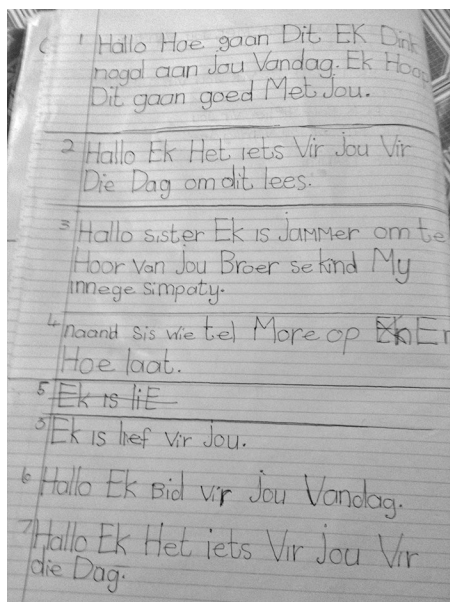 1 Hallo Hoe gaan Dit EK Dink
nogal aan Jou Vandag. Ek Hoop
Dit gaan goed Met Jou.
2 Hallo Ek Het iets Vir Jou Vir
Die Dag om dit lees.
3 Hallo sister Ek is JaMMer om te
Hoor Van Jou Broer se kind My
innege simpaty.
4 naand sis wie tel More op En Er
Hoe laat.
5 Ek is liE
5 Ek is lief Vir Jou.
6 Hallo Ek Bid Vir Jou Vandag.
7 Hallo Ek Het iets Vir Jou Vir
die Dag.